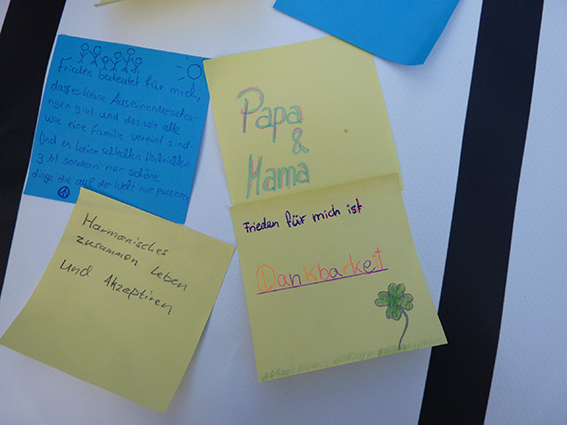 Frieden bedeutet für mich,
das es keine Auseinandersetzu-
ngen gibt und das wir alle
wie eine Familie vereint sind.
Und es keine schlechten Nachrichten
gibt sondern nur schöne
dinge die auf der Welt nur passieren
Papa
&
Mama
Harmonisches
zusammen Leben
und Akzeptiren
Frieden für mich ist
Dankbarkeit